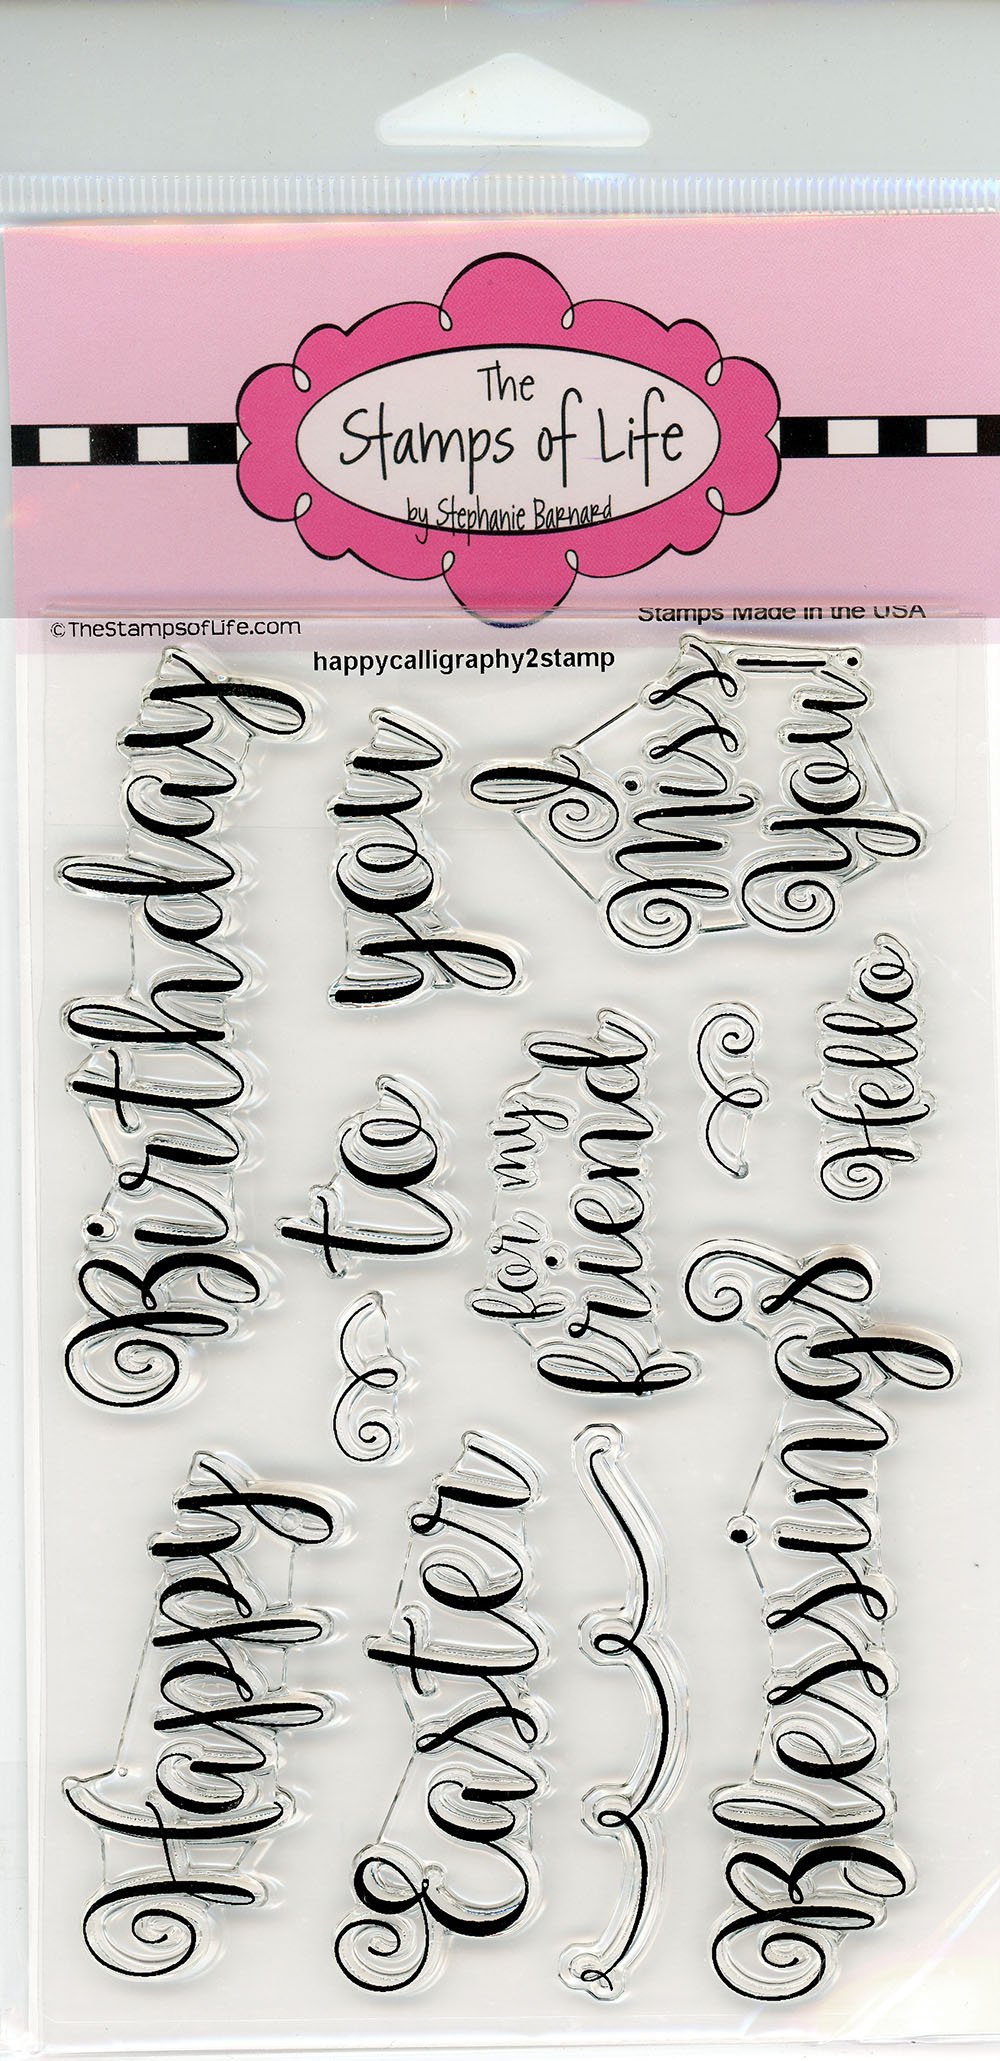 The
Stamps of Life
by Stephanie Barnard
Stamps Made in the USA
©TheStampsofLife.com
happycalligraphy2stamp
Happy Birthday
to you
Miss
you!
Hello
for my
friend
Easter
Blessings